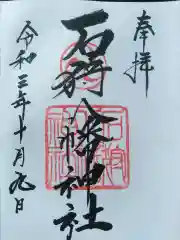 奉拝
石狩八幡神社
令和三年十月九日